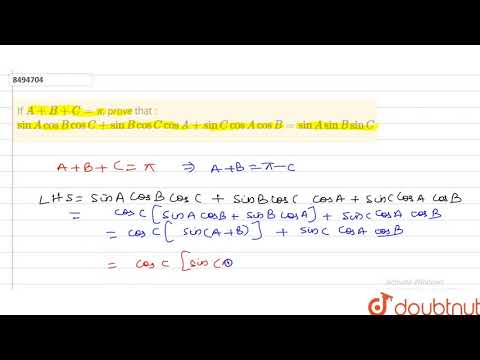 8494704
If A + B + C = π, prove that :
sin A cos B cos C + sin B cos C cos A + sin C cos A cos B = sin A sin B sin C
A+B+C = π ⇒ A+B = π-C
LHS = sin A cos B cos C + sin B cos C cos A + sin C cos A cos B
= cos C [sin A cos B + sin B cos A] + sin C cos A cos B
= cos C [ sin(A+B) ] + sin C cos A cos B
= cos C [sin (
Activate Windows
doubtnut